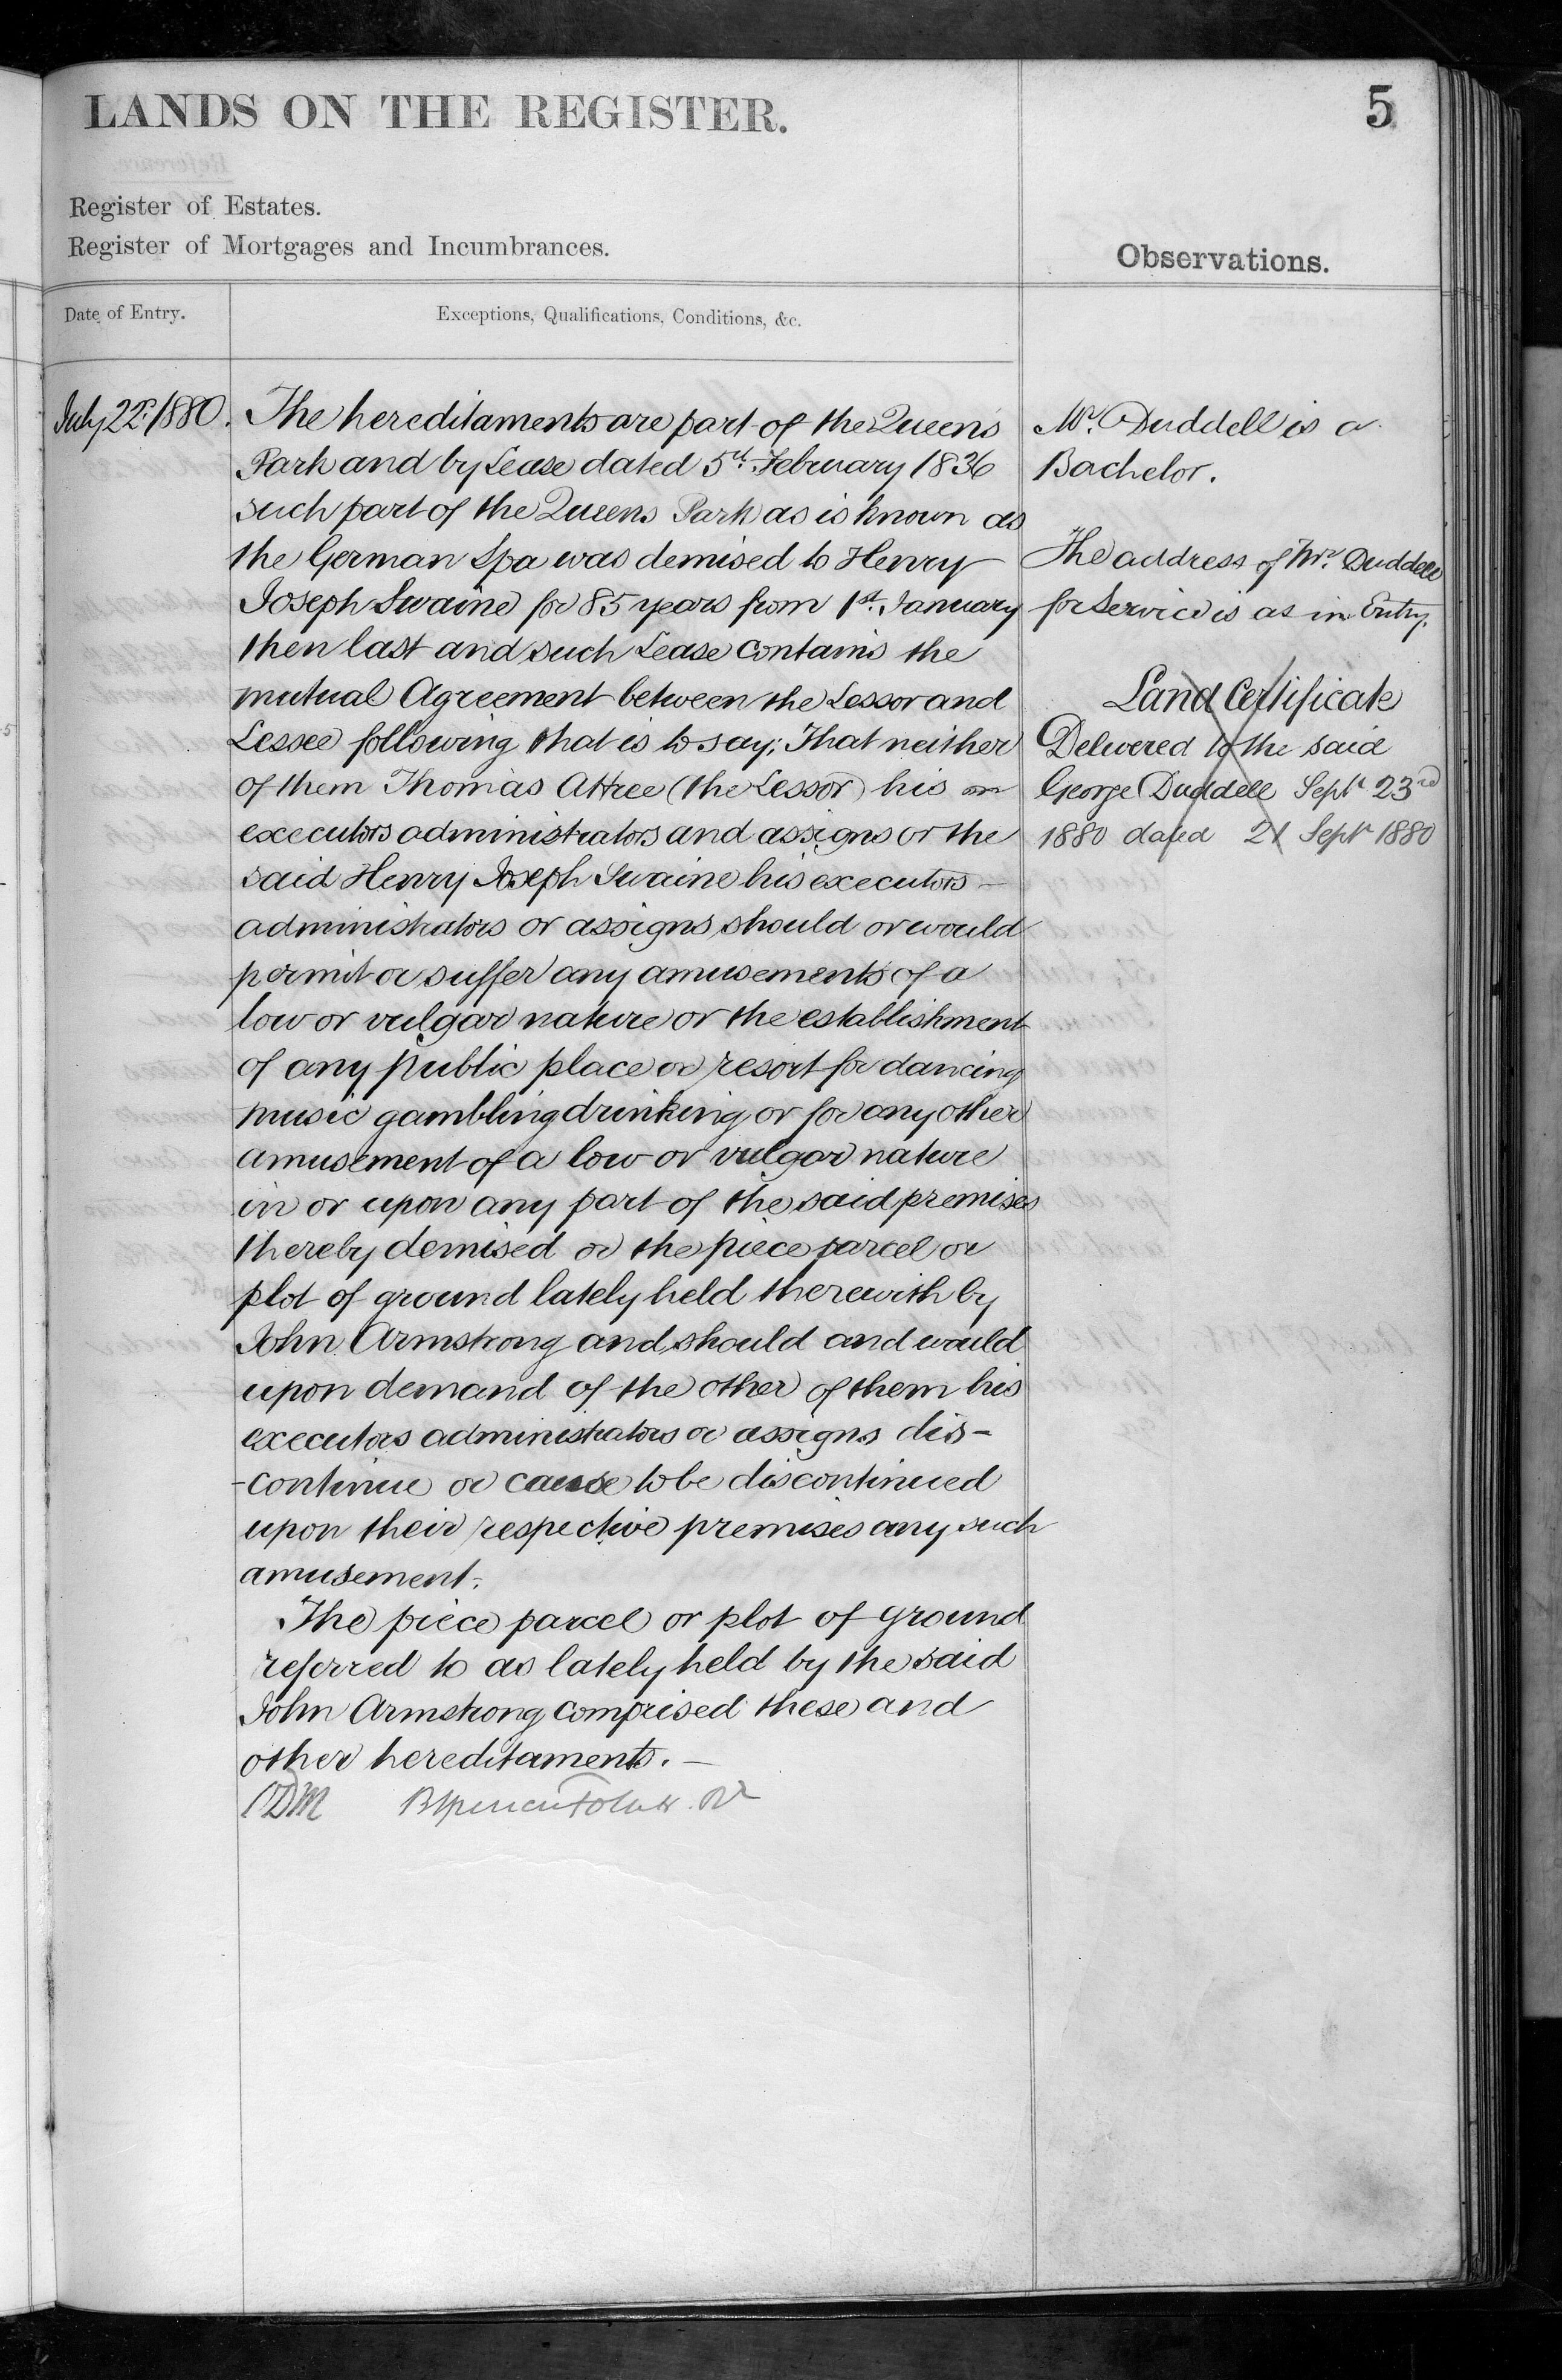 LANDS ON THE REGISTER.
5
Register of Estates.
Register of Mortgages and Incumbrances.
Observations.
Date of Entry.
Exceptions, Qualifications, Conditions, &c.
July 22d. 1880.
The hereditaments are part of the Queen's
Park and by Lease dated 5th. February 1836
such part of the Queens Park as is known as
the German Spa was demised to Henry
Joseph Swaine for 85 years from 1st. January
then last and such Lease contains the
mutual Agreement between the Lessor and
Lessee following that is to say; That neither
of them Thomas Attree (the Lessor) his
executors administrators and assigns or the
said Henry Joseph Swaine his executors
administrators or assigns should or would
permit or suffer any amusements of a
low or vulgar nature or the establishment
of any public place or resort for dancing
music gambling drinking or for any other
amusement of a low or vulgar nature
in or upon any part of the said premises
thereby demised or the piece parcel or
plot of ground lately held therewith by
John Armstrong and should and would
upon demand of the other of them his
executors administrators or assigns dis-
-continue or cause to be discontinued
upon their respective premises any such
amusement.
The piece parcel or plot of ground
referred to as lately held by the said
John Armstrong comprised these and
other hereditaments.
Mr. Duddell is a
Bachelor.
The address of Mr. Duddell
for Service is as in Entry.
Land Certificate
Delivered to the said
George Duddell Sept. 23rd
1880 dated 21 Sept 1880